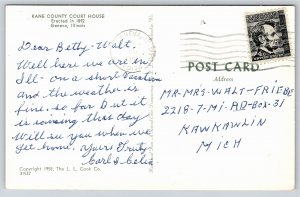 KANE COUNTY COURT HOUSE
Erected in 1892
Geneva, Illinois
Dear Betty-Walt.
Well here we are in
Ill- on a short Vacation
and the weather is
fine, so far but it
is raining this day
Will see you when we
get home. Yours Truly
Carl & Celia
Copyright 1958, The L. L. Cook Co.
POST CARD
Address
MR-MRS-WALT-FRIEBE
2218-7-MI-RD-BOX-31
KAWKAWLIN
MICH